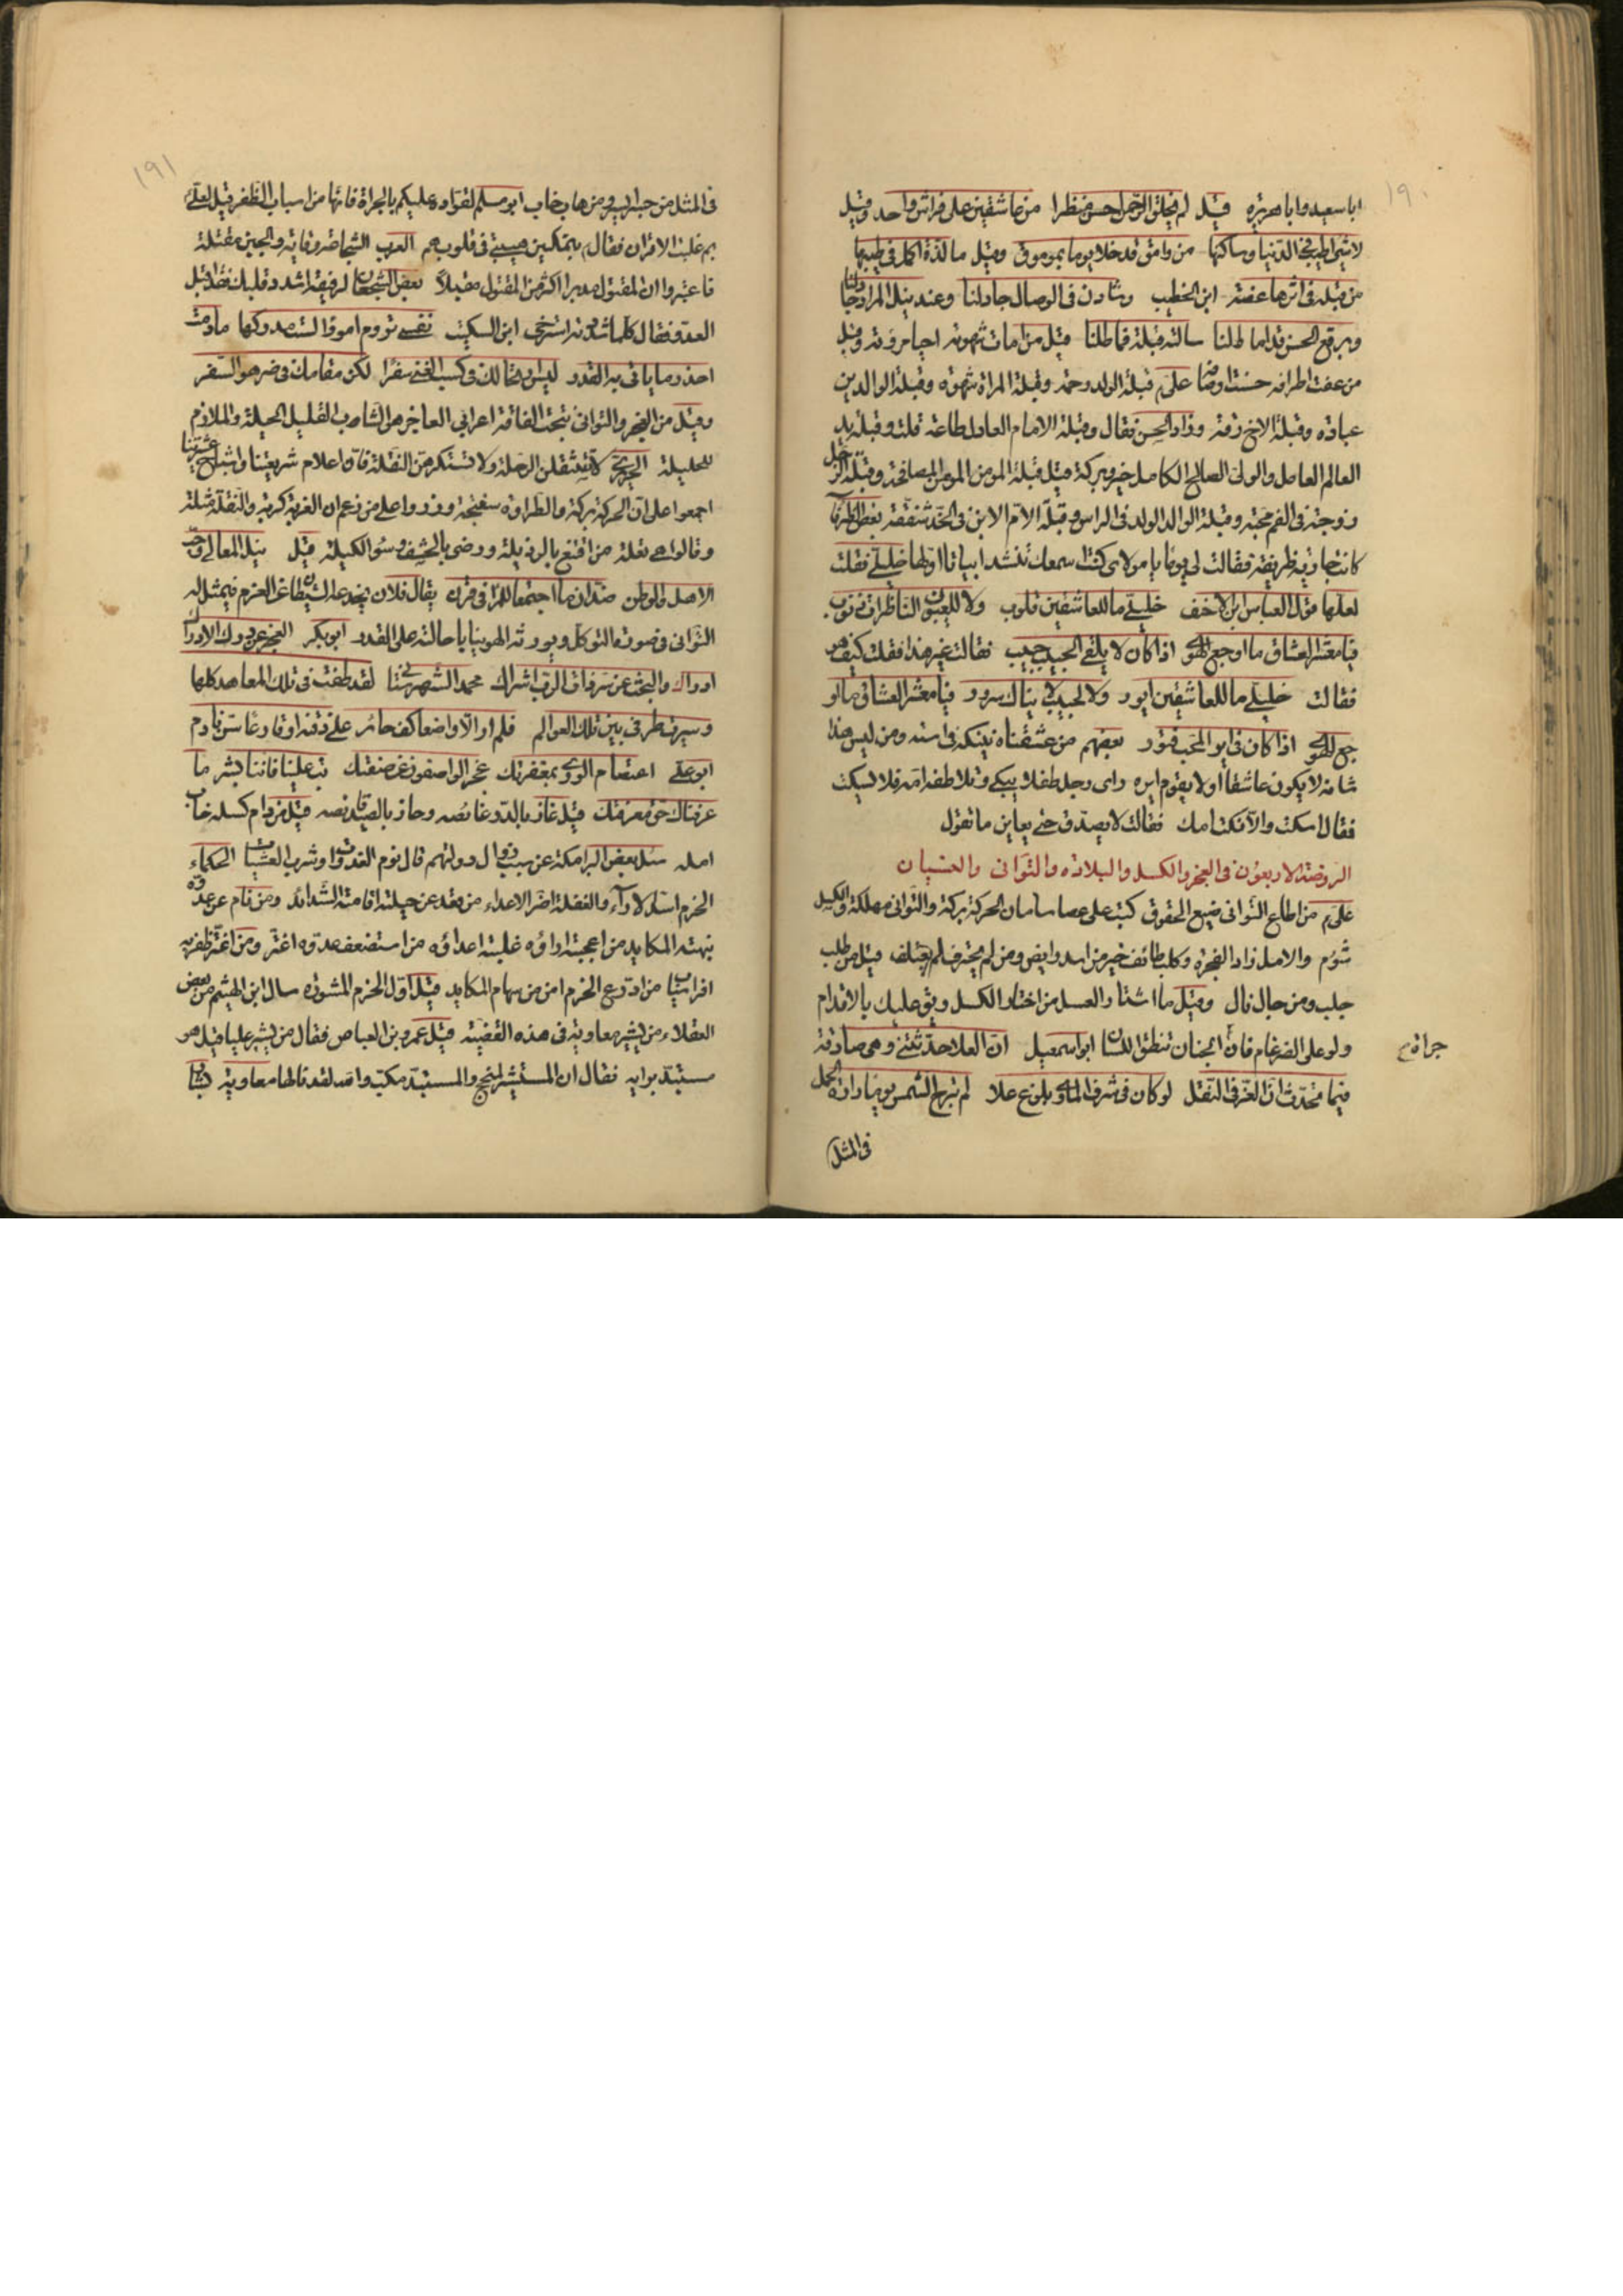 ١٩٠
ابا سعيد وابا هريرة قيل لم يخلق الرحمن احسن منظرا من عاشقين على فراش واحد وقيل
لا شئ اطيب في الدنيا وساكنها من وامق قد خلا يوما بموموق وقيل ما لذة اكمل في طيبها
من قبلة في اثرها عضة ابن الخطيب وشادن في الوصال جاد لنا وعند نيل المراد
وبرقع الحسن ما طلنا سالته قبلة فماطلنا قيل من امات شهوته احيا مروته وقيل
من عفت اطرافه حسنت اوصافه علي م قبلة الولد رحمة وقبلة المراة شهوة وقبلة الوالدين
عبادة وقبلة الاخ رقة وزاد الحسن فقال وقبلة الامام العادل طاعة قلت وقبلة يد
العالم العامل والولي الصالح الكامل خير وبركة قيل قبلة المومن المومن المصافحة وقبلة الرجل
زوجته في الفم محبة وقبلة الوالد الولد في الراس وقبلة الام الابن في الخد شفقة بعض الظرفا
كانت جارية ظريفة فقالت لي يوما يا مولاي كنت اسمعك تنشد ابياتا اولها خليلي فقلت
لعلها قول العباس بن الاحنف خليلي ما للعاشقين قلوب ولا للعيون الناظرات ذنوب
فيا معشر العشاق ما اوجع الهوى اذا كان لا يلقى الحبيب حبيب فقالت غير هذا فقلت كيف هو
فقالت خليلي ما للعاشقين ايور ولا لحبيب سرور فيا معشر العشاق ما او
جع الهوى اذا كان في اير المحب فتور بعضهم من عشقناه نيكه في استه ومن ليس هذا
شانه لا يكون عاشقا او لا يقوم ايره راى رجل طفلا يبكي وتلاطفه امه فلا يسكت
فقال اسكت والا نكت امك فقالت لا يصدق حتى يعاين ما تقول
الروضة الاربعون في العجز والكسل والبلادة والتوانى والنسيان
علي م من اطاع التوانى ضيع الحقوق كتب على عصا ساسان الحركة بركة والتوانى هلكة والكسل
شؤم والامل زاد العجزة وكلب طائف خير من اسد رابض ومن لم يحترف لم يعتلف قيل من طلب
جلب ومن جال نال وقيل ما اشتار العسل من اختار الكسل وقيل عليك بالاقدام
ولو على الضرغام فان جراة الجنان تنطق اللسان ابو اسمعيل ان العلا حدثتني وهي صادقة
فيما تحدث ان العز في النقل لو كان في شرف الماوى بلوغ علا لم تبرح الشمس يوما دارة الحمل
جراة ح
في المثل
١٩١
في المثل من جسر ايسر ومن هاب خاب ابو مسلم لقواده عليكم بالجراة فانها من اسباب الظفر قيل لعلي
بم غلبت الاقران فقال بتمكين هيبتي في قلوبهم العرب الشجاعة وقاية والجبن مقتلة
فاعتبروا ان المقتول مدبرا اكثر من المقتول مقبلا بعض الشجعان لرفيقه اشدد قلبك فقد اقبل
العدو فقال كلما شددته استرخى ابن السكيت نفسي تروم امورا لست مدركها ما دمت
احذر ما ياتي به القدر ليس ارتحالك في كسب الغنى سفرا لكن مقامك في ضر هو السفر
وقيل من العجز والتوانى نتجت الفاقة اعرابي العاجز هو الشاب القليل الحيلة والملازم
للحليلة الحريري لا تستثقلن الرحلة ولا تستنكر من النقلة فان اعلام شريعتنا واشياخ عشيرتنا
اجمعوا على ان الحركة بركة والطراوة سفتجة وزروا على من زعم ان الغربة كربة والنقلة مثلة
وقالوا هي تعلة من اقتنع بالرذيلة ورضي بالحشف وسوء الكيلة قيل نيل المعالي وحب
الاهل والوطن ضدان ما اجتمعا للمرء في قرن يقال فلان يخدعه الشيطان عن العزم فيمثل له
التوانى في صورة التوكل ويورثه الهوينا باحالته على القدر ابو بكر العجز عن درك الادراك
ادراك والبحث عن سر ذات الرب اشراك محمد الشهرستانى لقد طفت في تلك المعاهد كلها
وسيرت طرفي بين تلك العوالم فلم ار الا واضعا كف حائر على ذقنه او قارعا سن نادم
ابو علي اعتصام الورى بمغفرتك عجز الواصفون عن صفتك تب علينا فاننا بشر ما
عرفناك حق معرفتك قيل فاز بالدر غائصه وحاز بالصيد قانصه قيل من دام كسله خاب
امله سئل بعض البرامكة عن سبب زوال دولتهم قال نوم الغدوات وشرب العشيات الحكماء
الحزم اسد الآراء والغفلة اضر الاعداء من قعد عن حيلته اقامته الشدائد ومن نام عن عدوه
نبهته المكايد من اعجبته اراؤه غلبته اعداؤه من استضعف عدوه اغتر ومن اغتر ظفر به
افراسياب من ادرع الحزم امن من سهام المكايد قيل اول الحزم المشورة سال ابن الهيثم من بعض
العقلاء من يشير معاوية في هذه القضية قيل عمرو بن العاص فقال من يشير عليا قيل هو
مستبد برايه فقال ان المستشير لمنجح والمستبد مكب والله لقد نالها معاوية